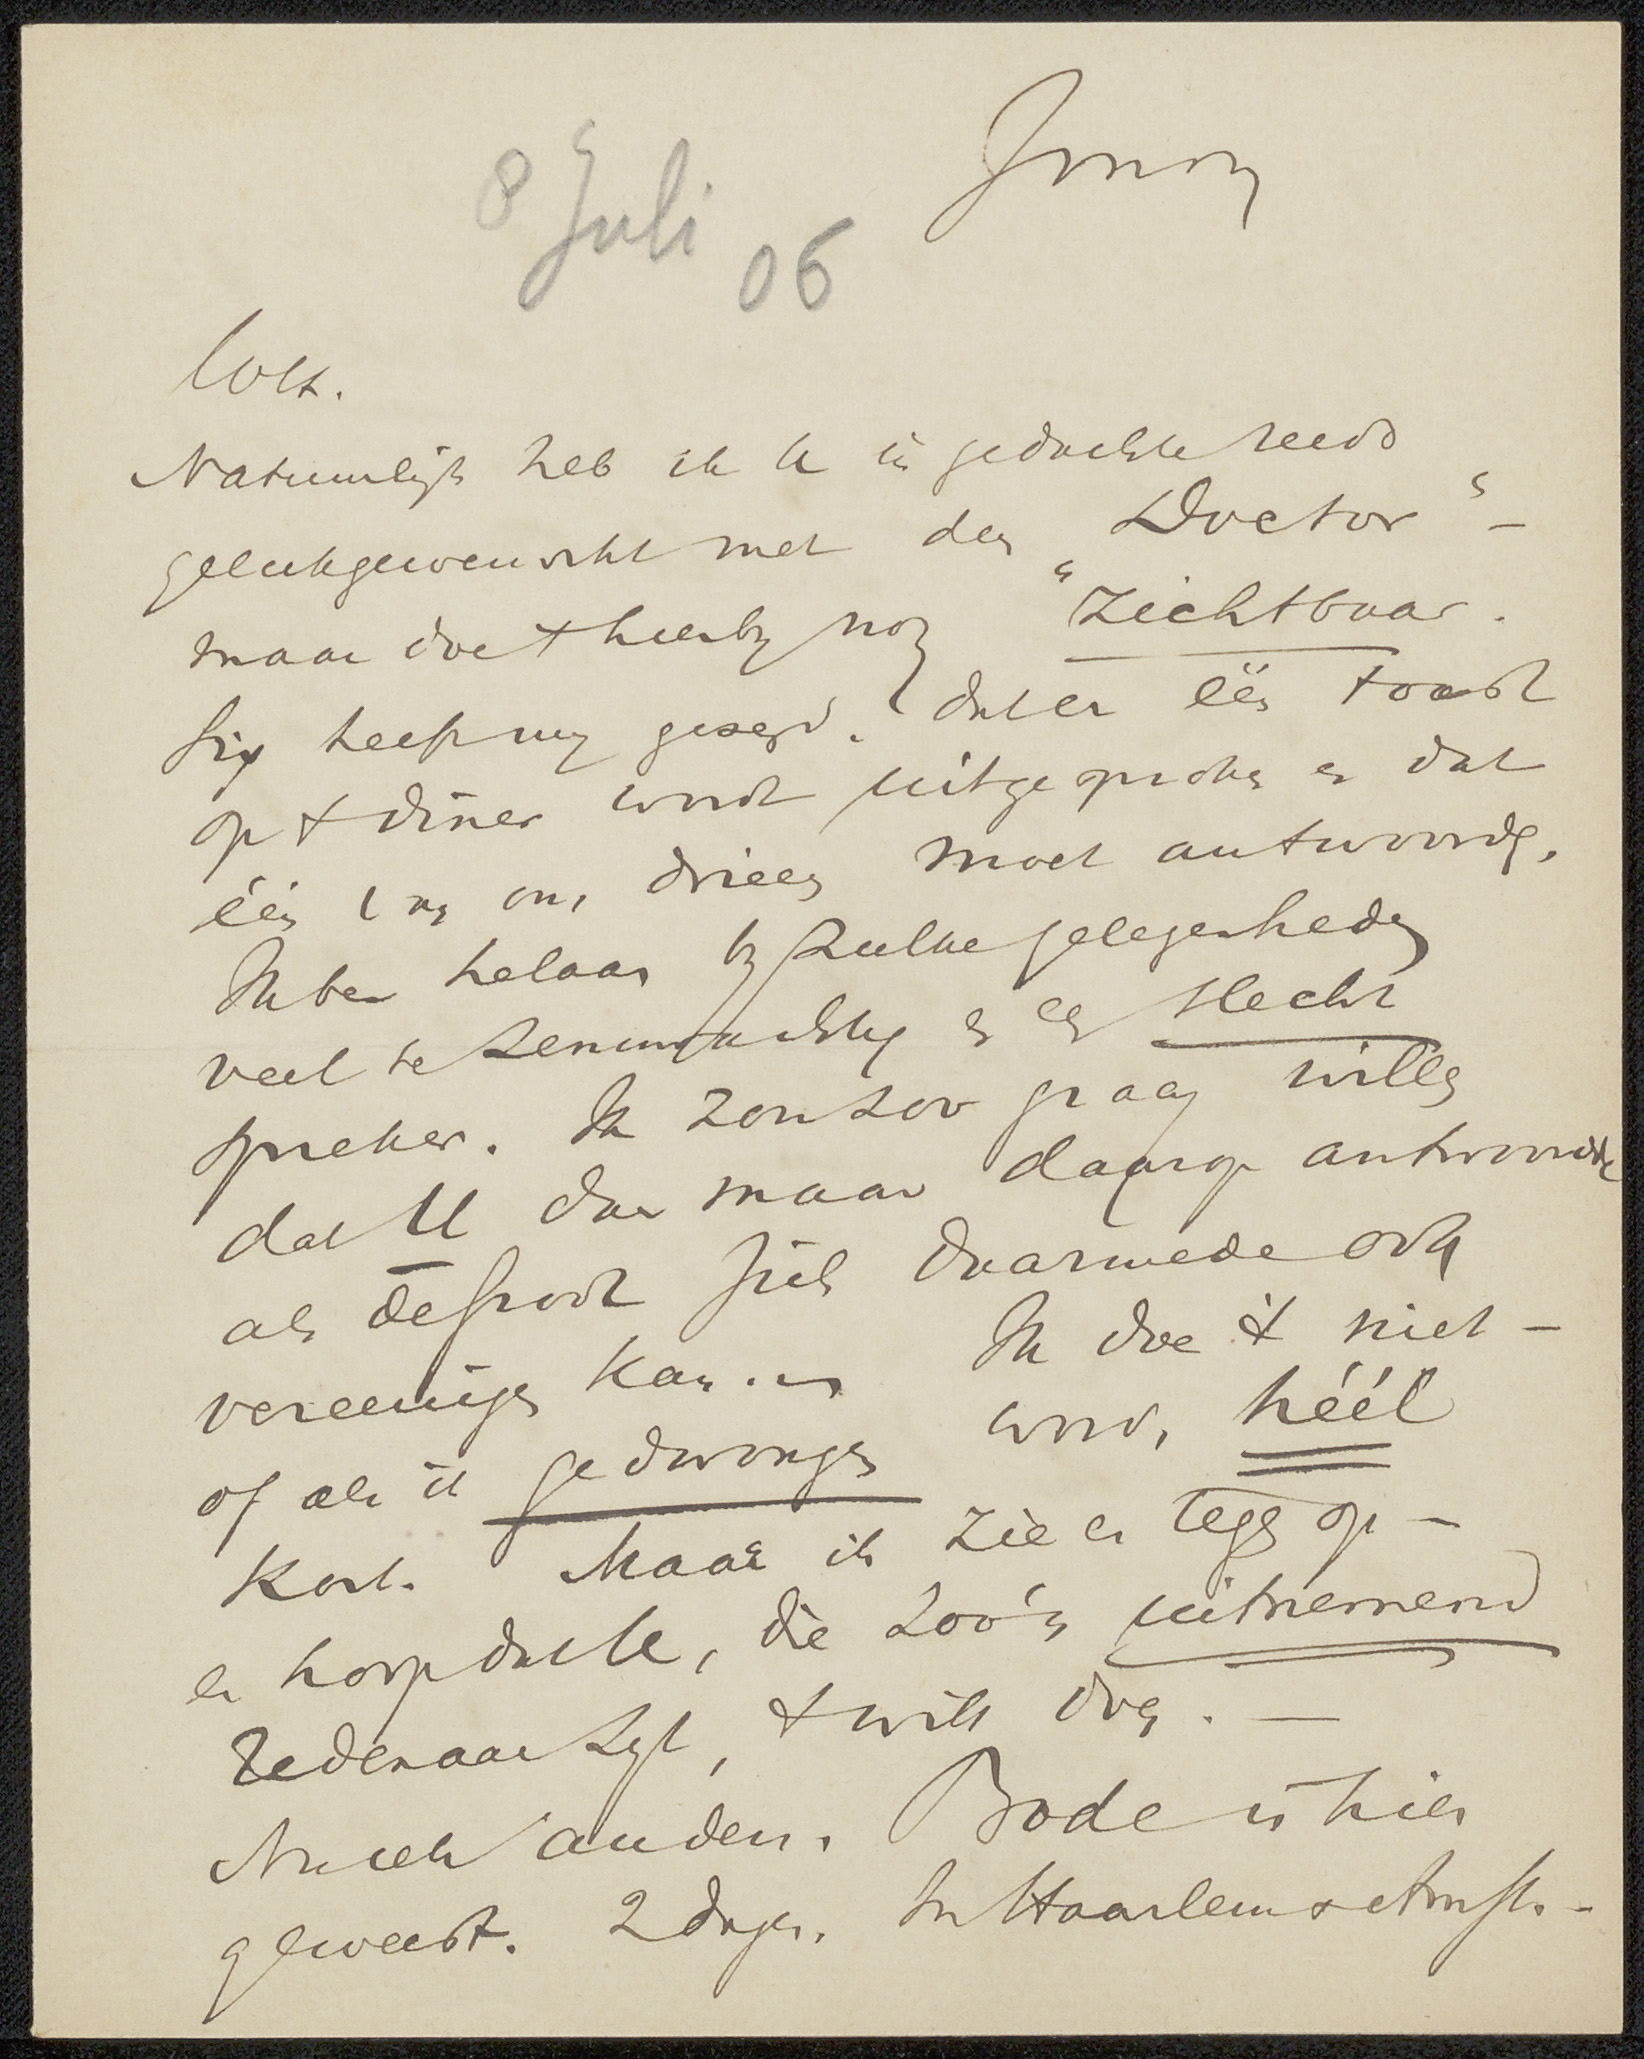 8 Juli 06
Natuurlijk heb ik U in gedachte reeds
gelukgewenscht met den "Doctor" -
maar doe 't hierbij nog "zichtbaar.
Six heeft mij gezegd. dat er één toast
op 't diner wordt uitgesproken en dat
één van ons drieën moet antwoorden.
Ik ben helaas bij zulke gelegenheden
veel te zenuwachtig en een slecht
spreker. Ik zou zoo graag willen
dat U dan maar daarop antwoordde
als de Groot zich daarmede ook
vereenigen kan. Ik doe 't niet -
of als ik gedwongen word, héél
kort. Maar ik zie er tegen op -
en hoop dat U, die zoo'n uitnemend
redenaar zijt, 't wilt doen. -
Bode is hier
geweest. 2 dagen. In Haarlem & Amst. -